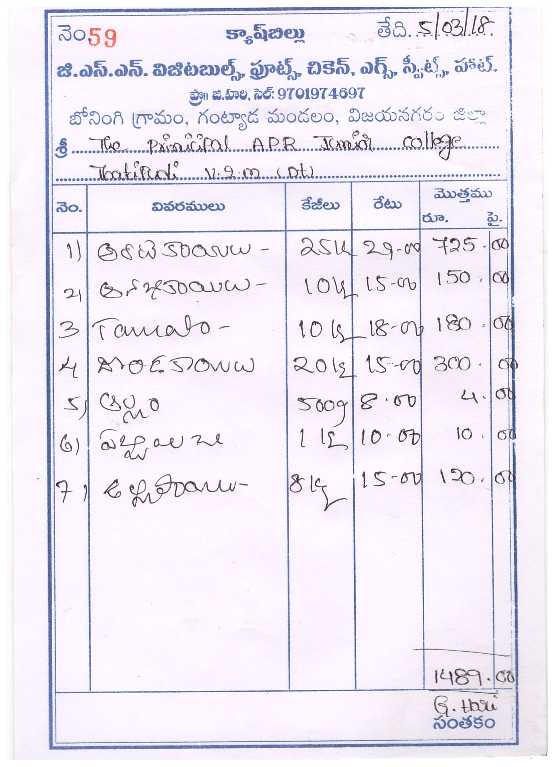 నెం 59 క్యాష్‌బిల్లు తేది. 5/03/18.
జి.ఎస్.ఎన్. విజిటబుల్స్, ఫ్రూట్స్, చికెన్, ఎగ్స్, స్వీట్స్, హాట్.
ప్రొ॥ జి.హరి, సెల్: 9701974697
బోనింగి గ్రామం, గంట్యాడ మండలం, విజయనగరం జిల్లా
శ్రీ The Prinicipal APR Junior College
Thatipudi V.Z.M (Dt)
నెం. వివరములు కేజీలు రేటు మొత్తము
రూ. పై.
1) అరటికాయలు - 25 kg 29-00 725.00
2) 10 kg 15-00 150.00
3 Tamato - 10 kg 18-00 180.00
4 20 kg 15-00 300.00
5) అల్లం 500g 8.00 4.00
6) 1 kg 10.00 10.00
7) 8 kg 15-00 120.00
1489.00
G. Hari
సంతకం